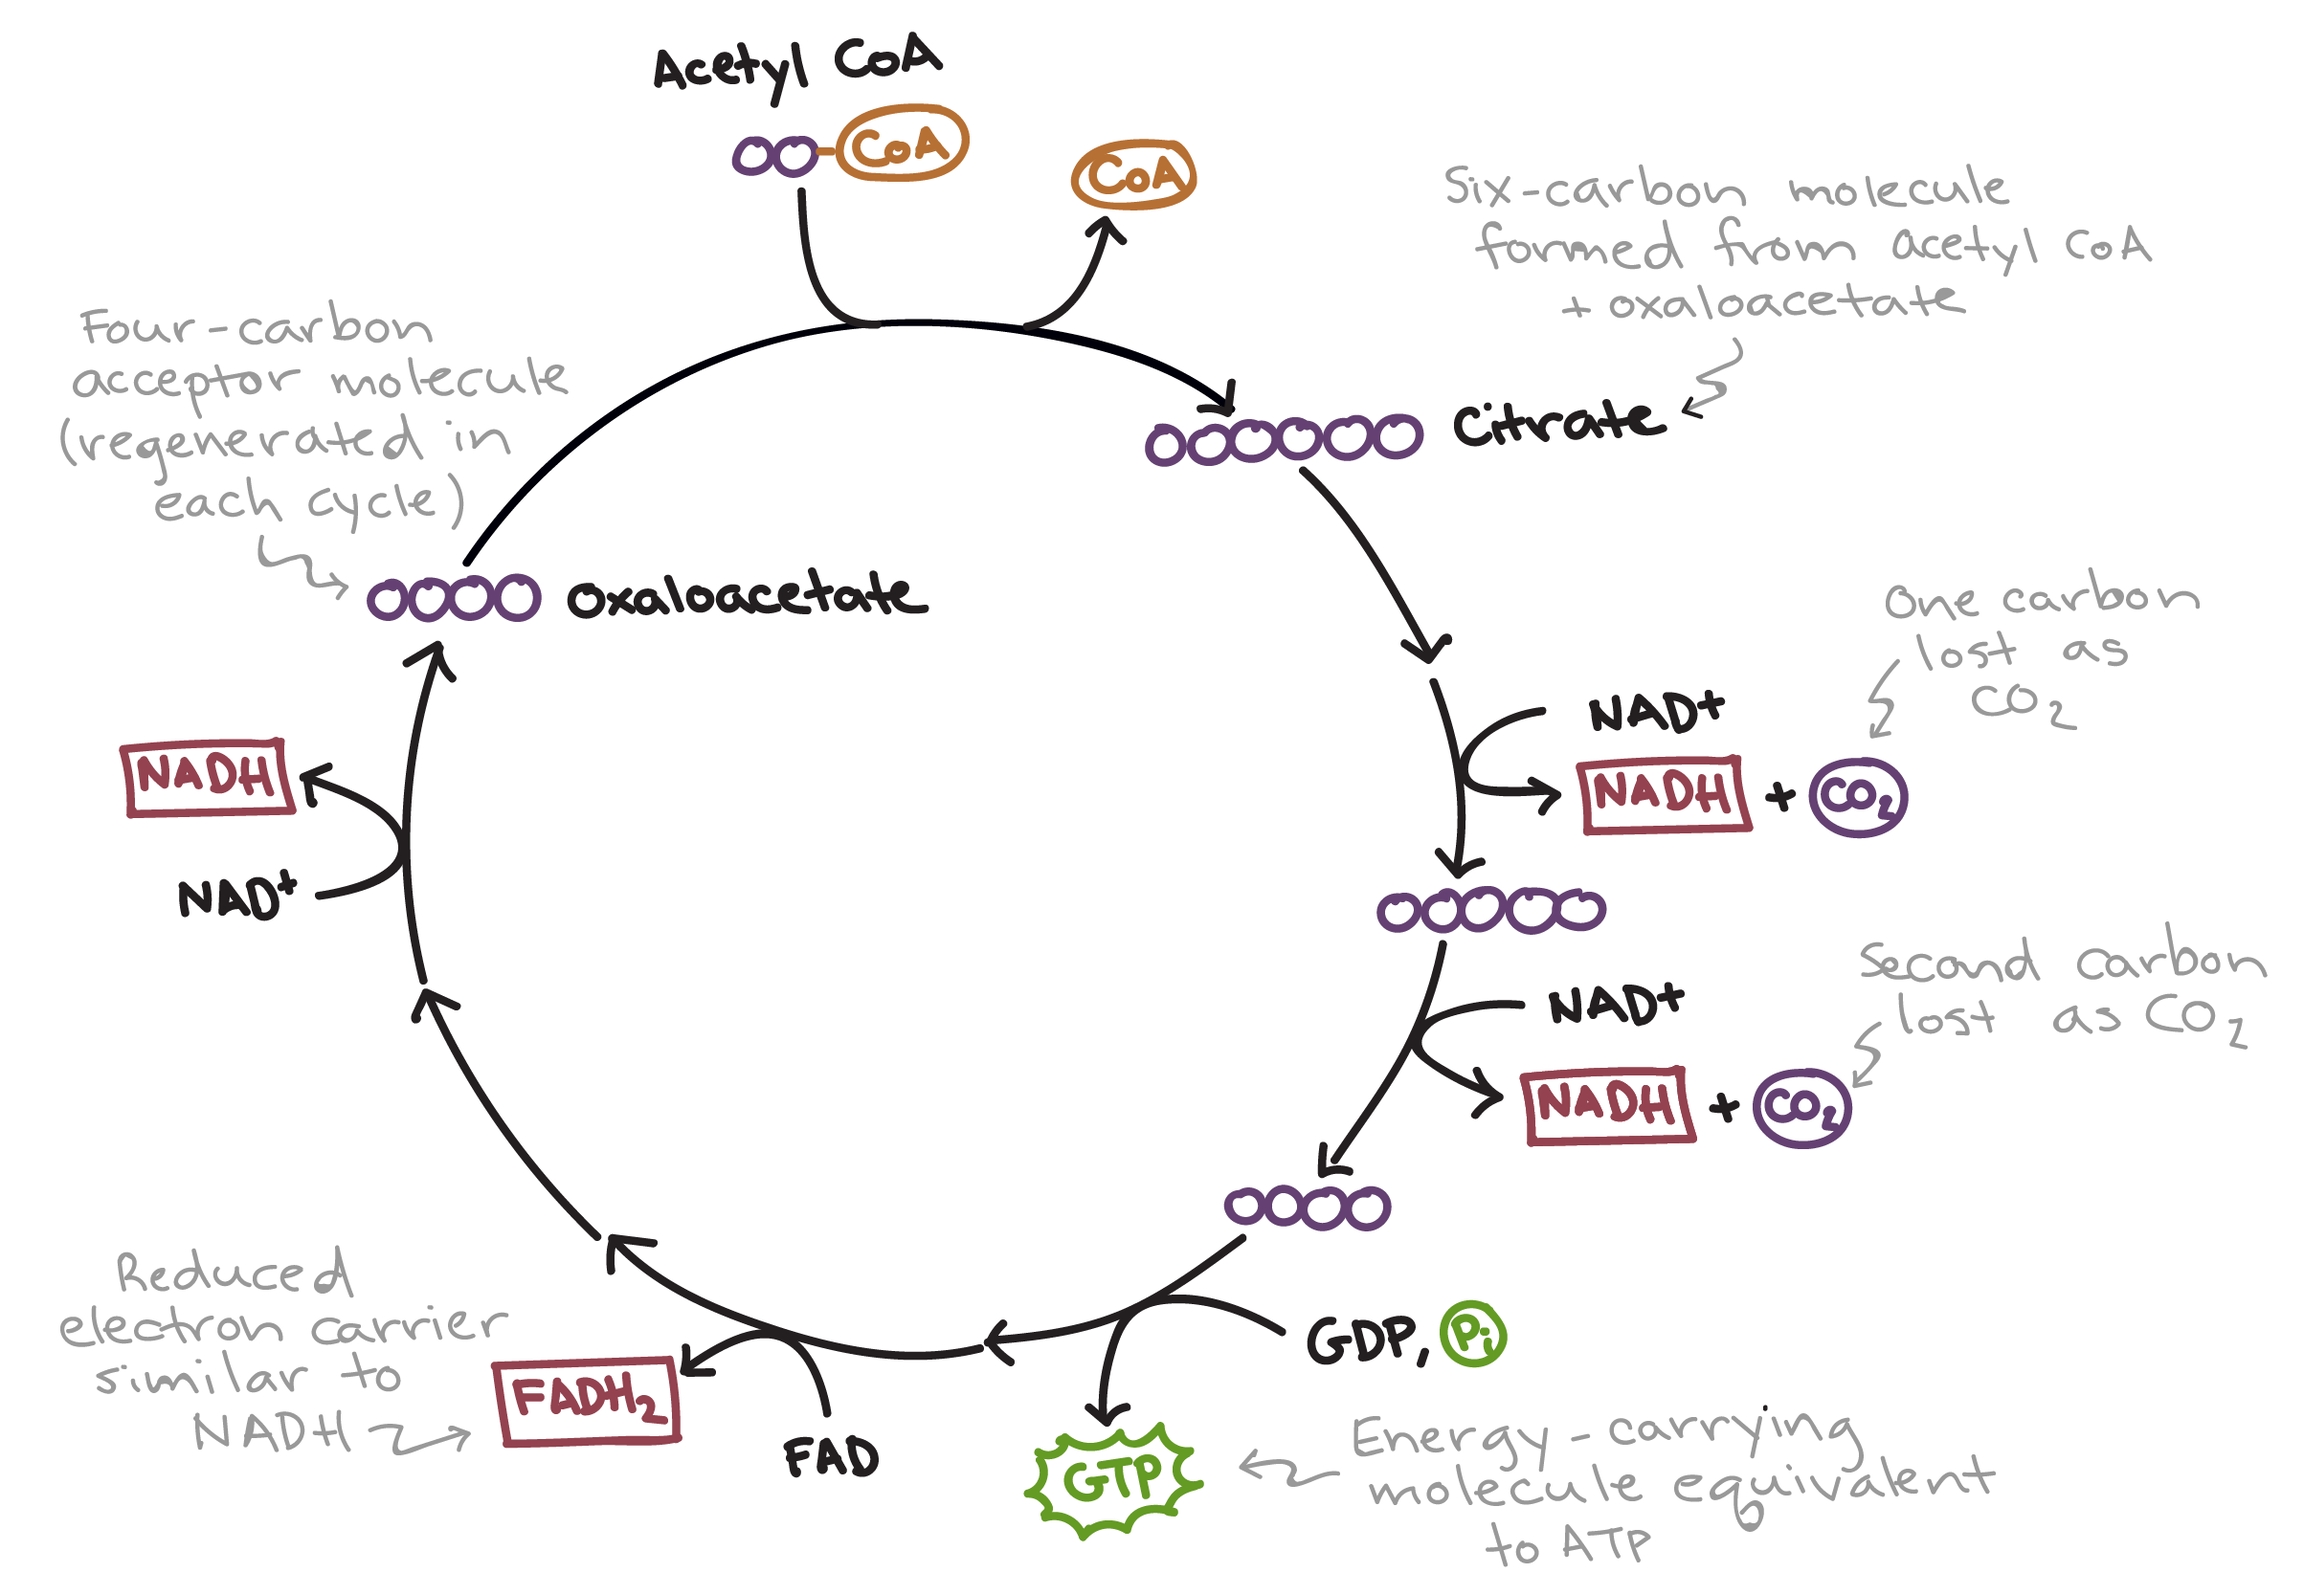 Acetyl CoA
CoA
CoA
Six-carbon molecule
formed from acetyl CoA
+ oxaloacetate
Four-carbon
acceptor molecule
(regenerated in
each cycle)
Citrate
oxaloacetate
One carbon
lost as
CO2
NAD+
NADH + CO2
NADH
NAD+
Second carbon
lost as CO2
NAD+
NADH + CO2
Reduced
electron carrier
similar to
NADH
GDP, Pi
FADH2
FAD
GTP
Energy-carrying
molecule equivalent
to ATP